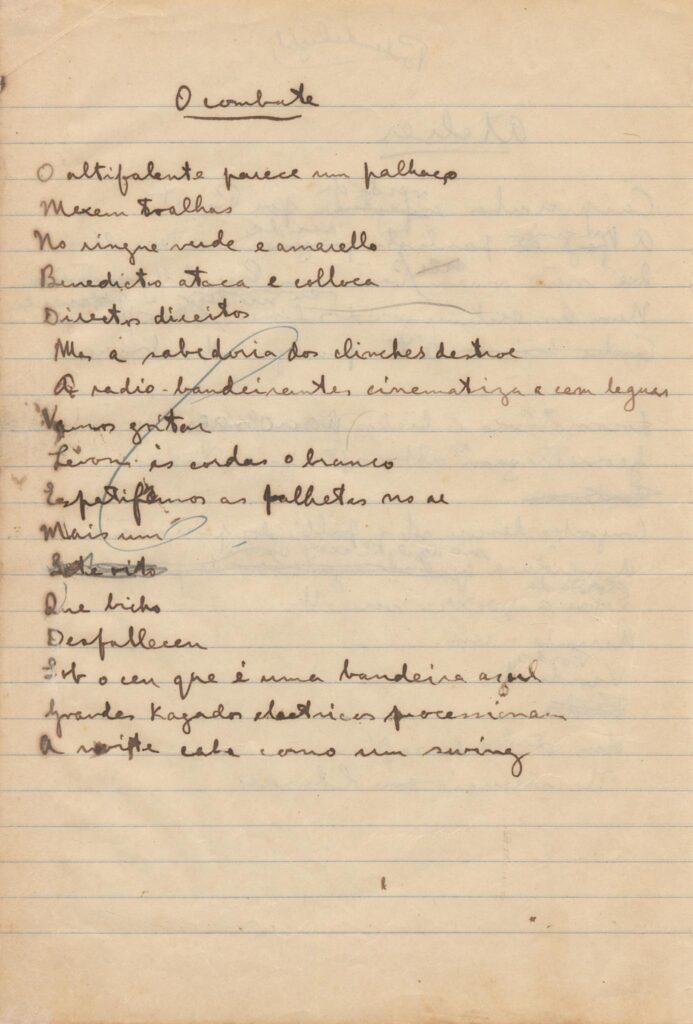 O combate
O altifalente parece um palhaço
Mexem toalhas
No ringue verde e amarello
Benedicto ataca e colloca
Directos direitos
Mas a sabedoria dos clinches destroe
A radio-bandeirantes cinematiza a cem leguas
Vamos gritar
Levou ás cordas o branco
Espatifamos as palhetas no ar
Mais um
Sete oito
Que bicho
Desfalleceu
Sob o ceu que é uma bandeira açul
Grandes Kagados electricos processionam
A noite cabe como um swing